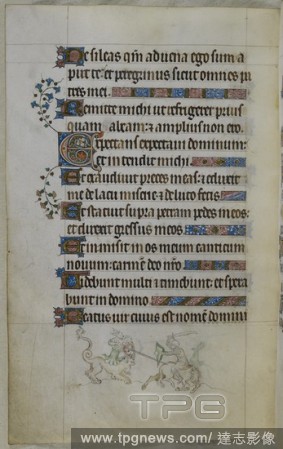 Ne sileas qm aduena ego sum a
put te: et peregrinus sicut omnes pa
tres mei.
Remitte michi ut refrigerer prius
quam abeam: et amplius non ero.
Expectans expectaui dominum:
et intendit michi.
Et exaudiuit preces meas: et eduxit
me de lacu miserie et de luto fecis
Et statuit supra petram pedes meos:
et direxit gressus meos
Et inmisit in os meum canticum
nouum: carmen deo nro
Uidebunt multi et timebunt: et spera
bunt in domino
Beatus uir cuius est nomen domini
TPG
www.tpgnews.com/ 達志影像